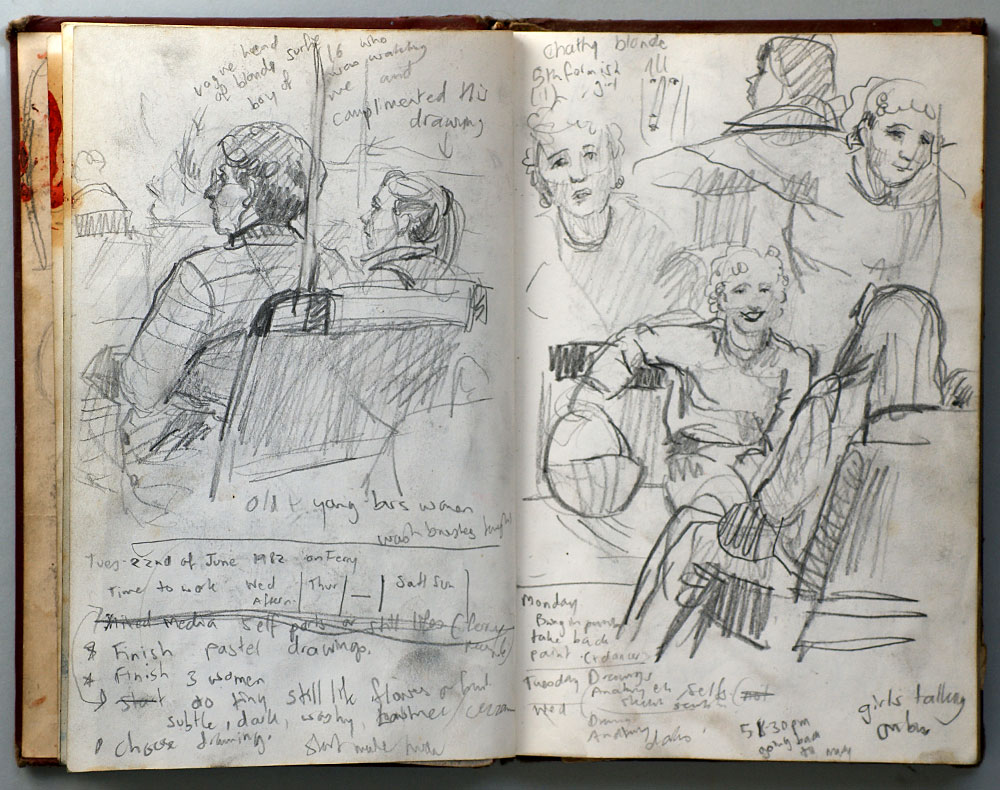 vague head surfie
of blonde
boy of
16 who
was watching
me and
complimented this
drawing
Old + young bus women
wash brushes tonight
Tues 22nd of June 1982 on Ferry
Time to work Wed Thur — Sat Sun
Aftern.
Mixed Media Self ports or still lifes (ferry
Finish pastel drawings.
Finish 3 women
start do tiny still life flowers or fruit
subtle, dark, washy,
choose drawing.
Start nude
Chatty blonde
5th formish
girl
Monday
Bring in
take back
paint
Tuesday Drawings
Anatomy selfs
Wed
Anatomy
5.30pm
going back
girls talking
on bus